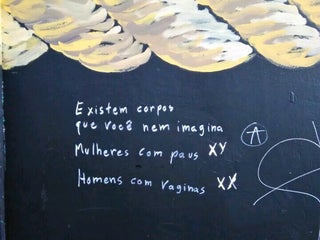 Existem corpos
que você nem imagina
Mulheres com paus XY
Homens com vaginas XX
A